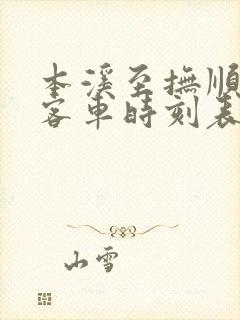 本溪至撫順
客車時刻表
山雪